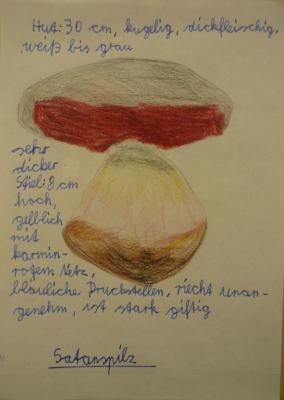 Hut: 30 cm, kugelig, dickfleischig,
weiß bis grau
sehr
dicker
Stiel: 8 cm
hoch,
gelblich
mit
karmin-
rotem Netz,
bläuliche Druckstellen, riecht unan-
genehm, ist stark giftig
Satanspilz